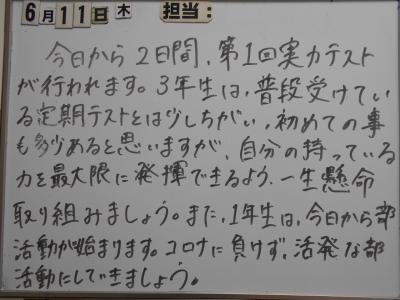 6月11日木 担当:
今日から2日間、第1回実力テスト
が行われます。3年生は、普段受けてい
る定期テストとは少しちがい、初めての事
も多少あると思いますが、自分の持っている
力を最大限に発揮できるよう、一生懸命
取り組みましょう。また、1年生は、今日から部
活動が始まります。コロナに負けず、活発な部
活動にしていきましょう。